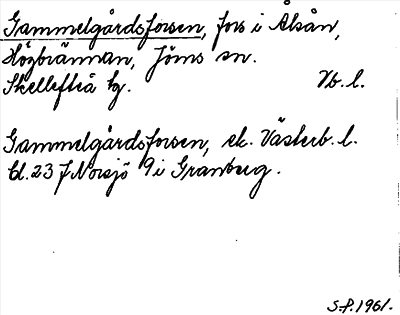 Gammelgårdsforsen, fors i Åhån,
Högbrännan, Jörns sn.
Skellefteå tg. Vb. l.
Gammelgårdsforsen, ek. Västerb. l.
bl. 23 J Norsjö 9 i Granberg.
S.P. 1961.